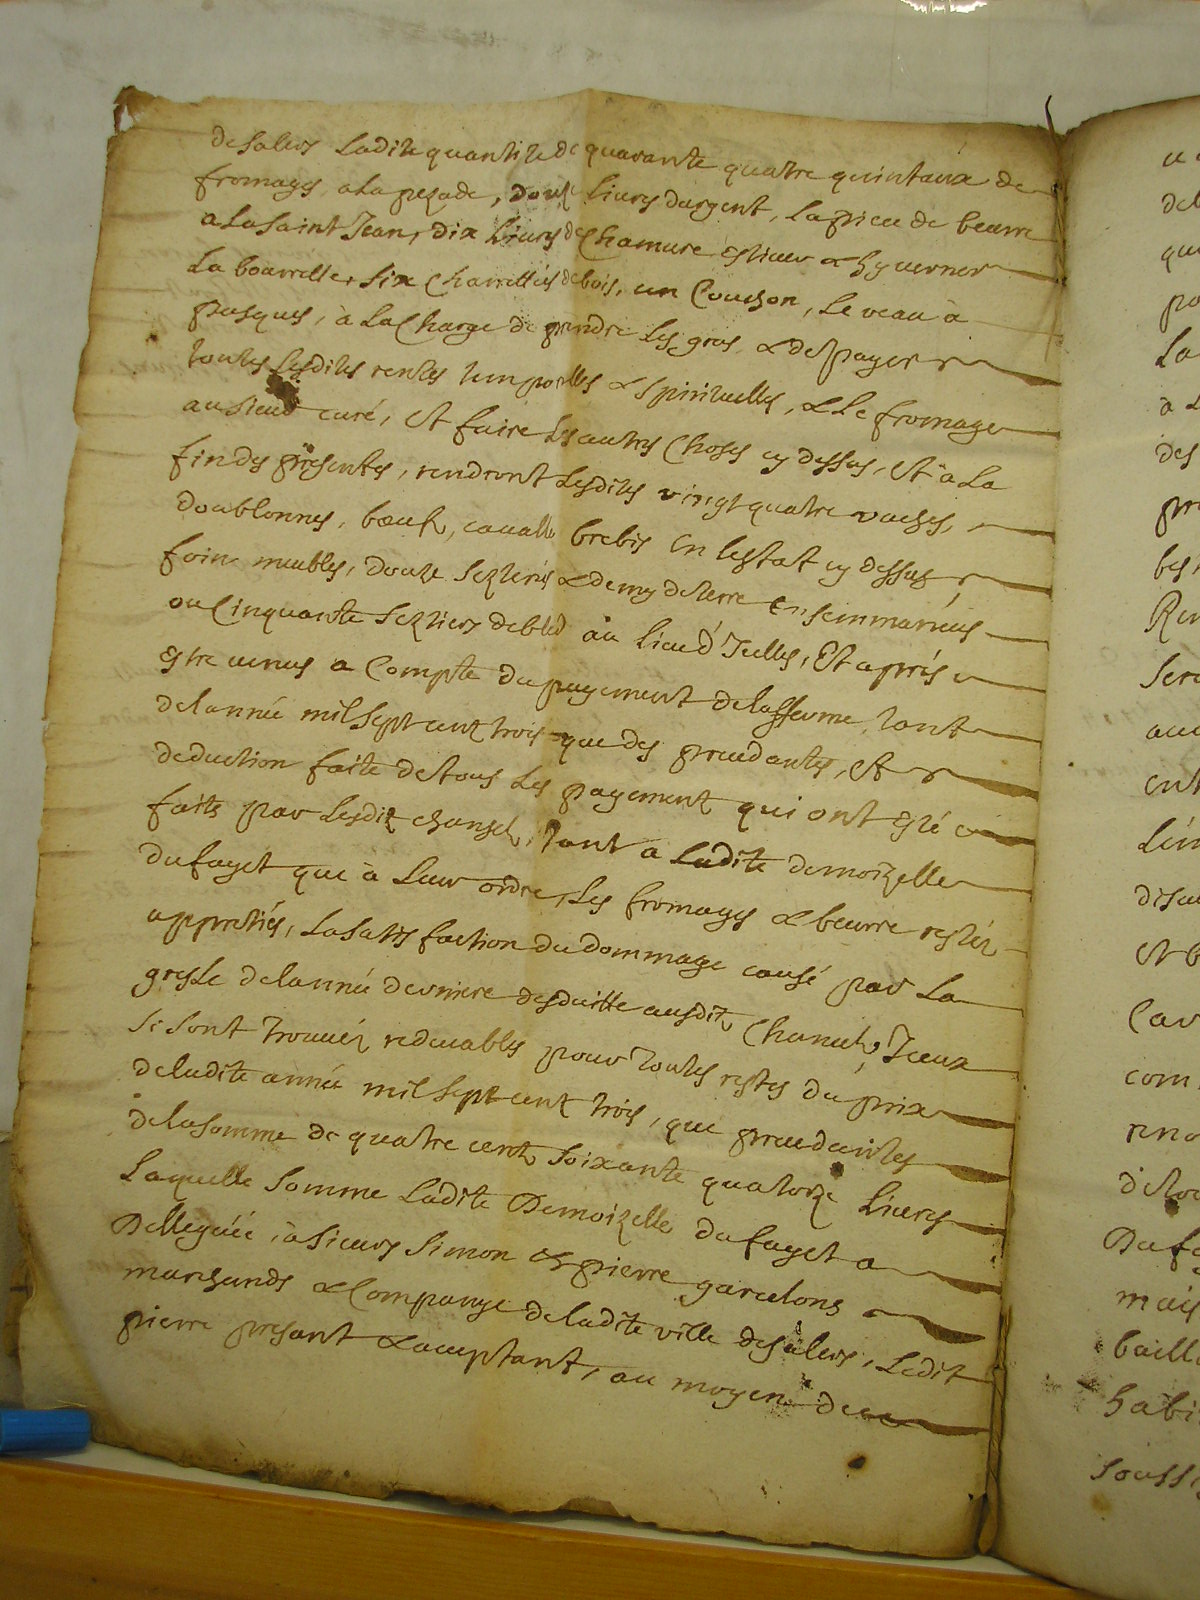 de salers ladite quantité de quarante quatre quintaux de
fromages a la pezade, douze livres d'argent, la piece de beurre
a la saint Jean, dix livres de chamure estiver & hyverner
la bourrelle, six charrettées de bois, un couchon, le veau à
pasques, à la charge de prendre les gras & de payer
toutes lesdites rentes temporelles & spirituelles, & le fromage
au sieur curé, et faire les autres choses cy dessus, et à la
fin des présentes, rendront lesdites vingt quatre vaches,
doublonnes, bœufs, cavalle brebis en lestat cy dessus,
foin meubles, douze sezterés & demy de terre ensemmancés
ou cinquante seztiers de bled au lieu d'Icelles, Et après
estre venus a compte du payement de la fferme, tant
de lannée mil sept centz trois que des precedantes, et
deduction faite de tous les payementz qui ont esté
faits par lesditz chansel, tant a ladite demoizelle
du fayet que à leur ordre, les fromages & beurre restéz
appretiés, la satisfaction du dommage causé par la
gresle de lannée derniere desduitte ausditz Chancel, Iceux
se sont trouvéz redevables pour toutes restes du prix
de ladite année mil sept centz trois, que precedantes
de la somme de quatre centz soixante quatorze livres
laquelle somme ladite Demoizelle du fayet a
delleguée à sieurs Simon & pierre garcelons
marchands & Compange de ladite ville de salers, ledit
pierre present & acceptant, au moyen de ce